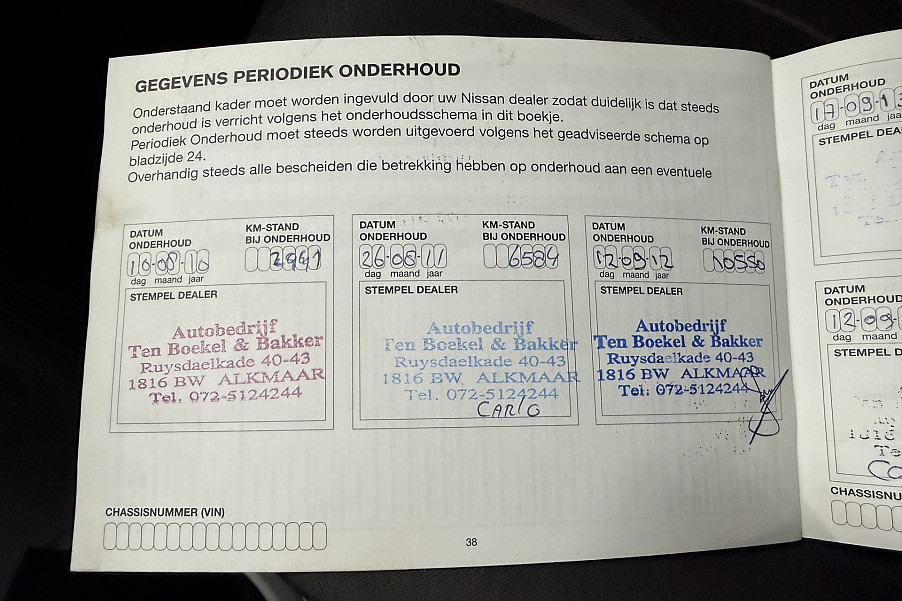 GEGEVENS PERIODIEK ONDERHOUD
Onderstaand kader moet worden ingevuld door uw Nissan dealer zodat duidelijk is dat steeds
onderhoud is verricht volgens het onderhoudsschema in dit boekje.
Periodiek Onderhoud moet steeds worden uitgevoerd volgens het geadviseerde schema op
bladzijde 24.
Overhandig steeds alle bescheiden die betrekking hebben op onderhoud aan een eventuele
DATUM
ONDERHOUD
KM-STAND
BIJ ONDERHOUD
10-08-10
2991
dag maand jaar
STEMPEL DEALER
Autobedrijf
Ten Boekel & Bakker
Ruysdaelkade 40-43
1816 BW ALKMAAR
Tel. 072-5124244
DATUM
ONDERHOUD
KM-STAND
BIJ ONDERHOUD
26-08-11
6584
dag maand jaar
STEMPEL DEALER
Autobedrijf
Ten Boekel & Bakker
Ruysdaelkade 40-43
1816 BW ALKMAAR
Tel. 072-5124244
CARLO
DATUM
ONDERHOUD
KM-STAND
BIJ ONDERHOUD
12-09-12
10550
dag maand jaar
STEMPEL DEALER
Autobedrijf
Ten Boekel & Bakker
Ruysdaelkade 40-43
1816 BW ALKMAAR
Tel. 072-5124244
CHASSISNUMMER (VIN)
38
DATUM
ONDERHOUD
17-09-13
dag maand jaar
STEMPEL DEALER
DATUM
ONDERHOUD
12-09-
dag maand
STEMPEL D
1816
Te
CHASSISNU